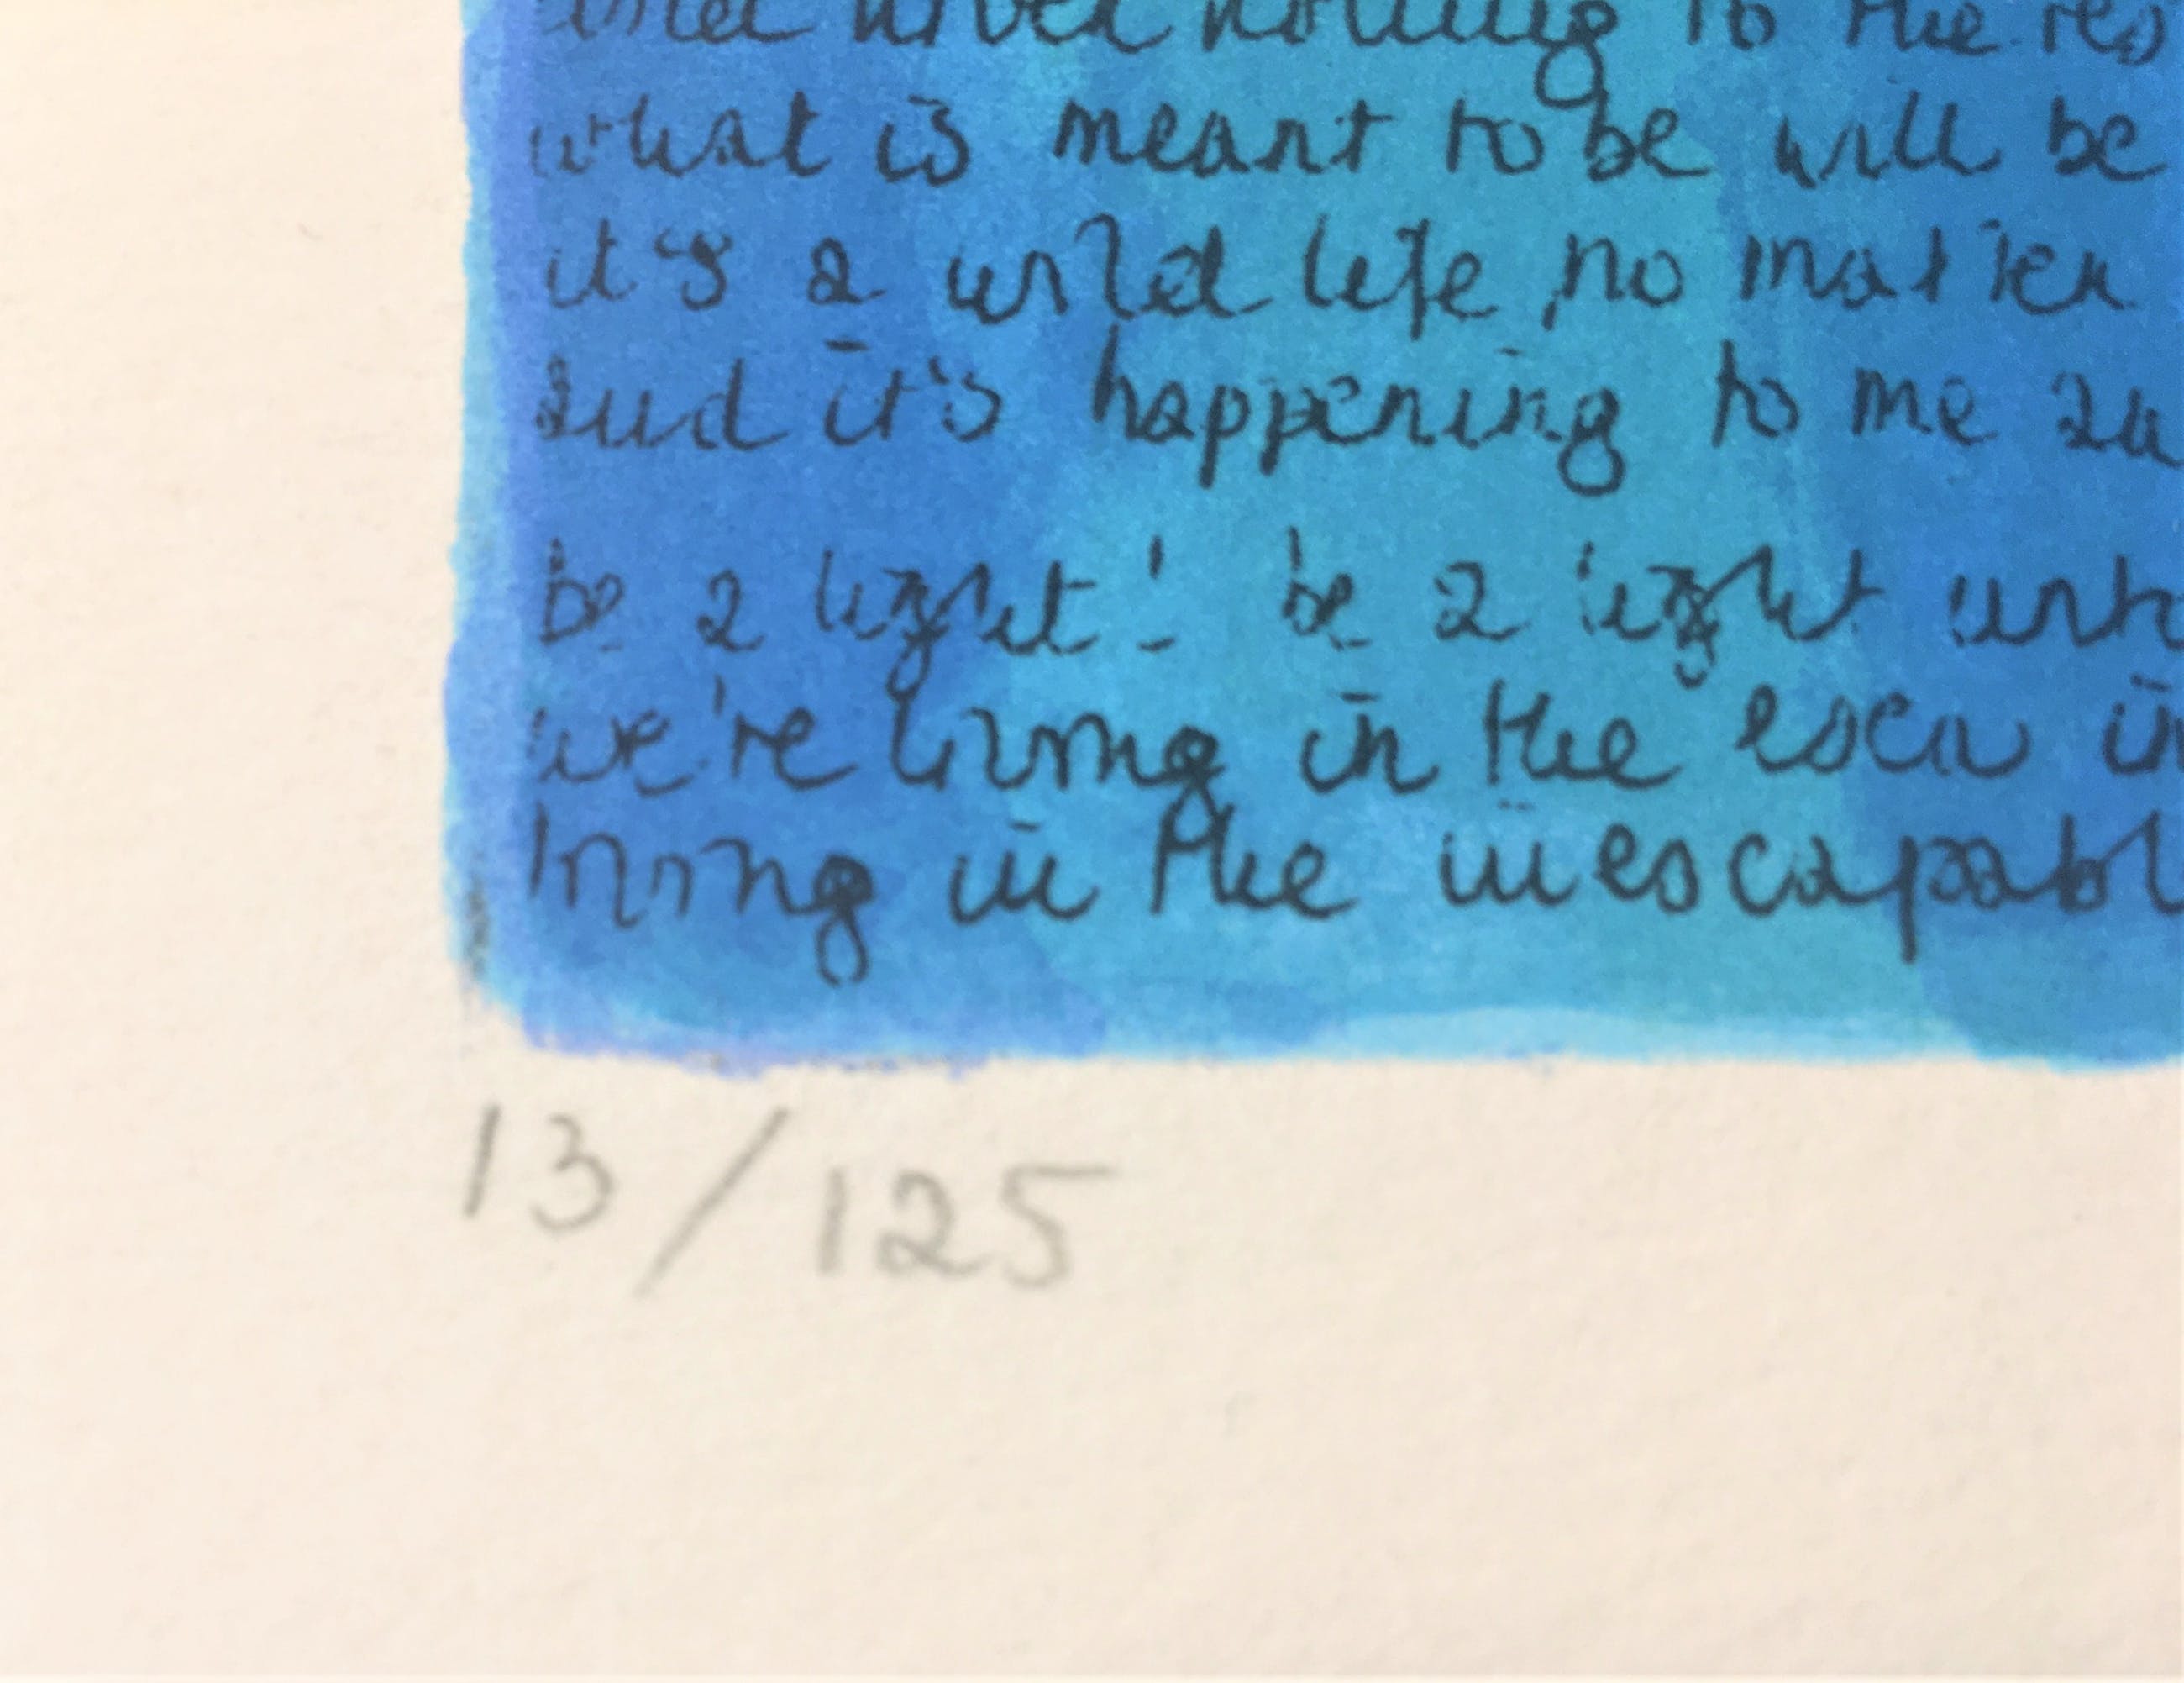 nothing to the
what is meant to be will be
it's a wild life, no matter
and it's happening to me
be a light! be a light
we're living in the in
living in the inescapabl
13/125